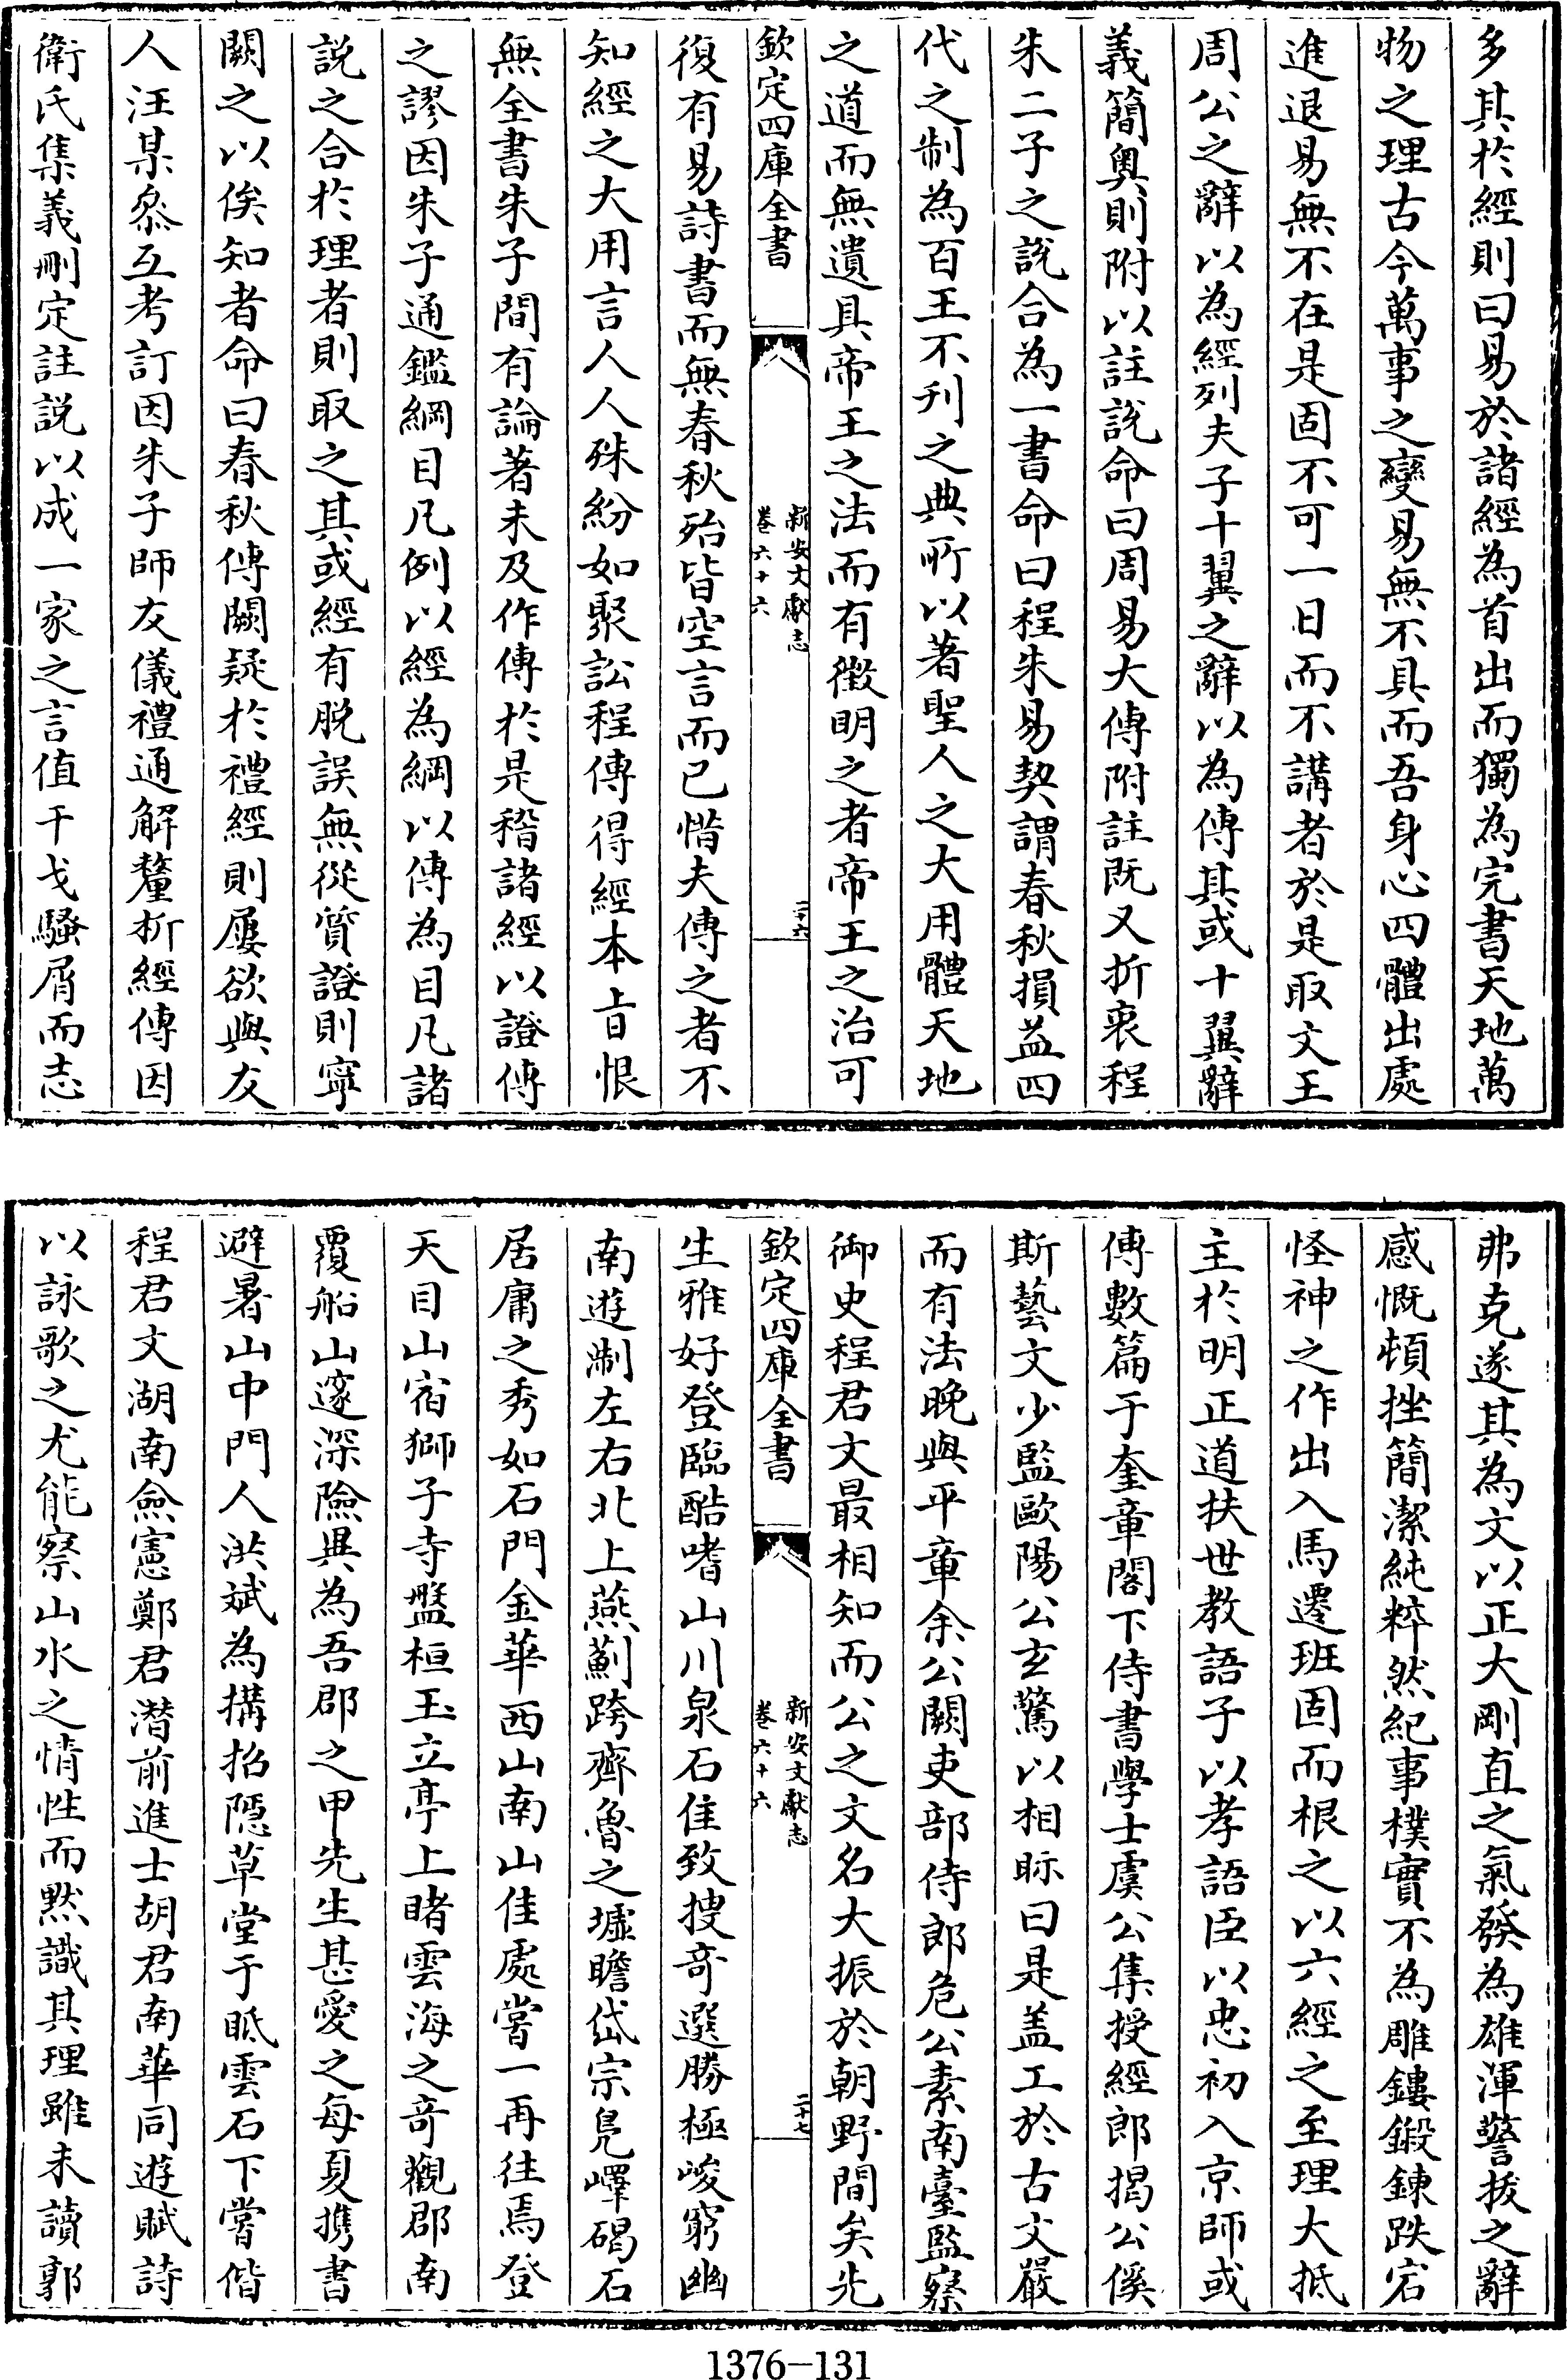 多其於經則曰易於諸經為首出而獨為完書天地萬
物之理古今萬事之變易無不具而吾身心四體出處
進退易無不在是固不可一日而不講者於是取文王
周公之辭以為經列夫子十翼之辭以為傳其或十翼辭
義簡奥則附以註説命曰周易大傳附註既又折衷程
朱二子之説合為一書命曰程朱易契謂春秋損益四
代之制為百王不刊之典所以著聖人之大用體天地
之道而無遺具帝王之法而有徵明之者帝王之治可
欽定四庫全書
新安文獻志
卷六十六
二十六
復有易詩書而無春秋殆皆空言而已惜夫傳之者不
知經之大用言人人殊紛如聚訟程傳得經本㫖恨
無全書朱子間有論著未及作傳於是稽諸經以證傳
之謬因朱子通鑑綱目凡例以經為綱以傳為目凡諸
説之合於理者則取之其或經有脱誤無從質證則寧
闕之以俟知者命曰春秋傳闕疑於禮經則屢欲與友
人汪某叅互考訂因朱子師友儀禮通解釐析經傳因
衛氏集義刪定註説以成一家之言值干戈騷屑而志
弗克遂其為文以正大剛直之氣發為雄渾警拔之辭
感慨頓挫簡潔純粹然紀事樸實不為雕鏤鍛鍊跌宕
怪神之作出入馬遷班固而根之以六經之至理大抵
主於明正道扶世教語子以孝語臣以忠初入京師或
傳數篇于奎章閣下侍書學士虞公集授經郎揭公傒
斯藝文少監歐陽公玄驚以相眎曰是盖工於古文嚴
而有法晚與平章余公闕吏部侍郎危公素南臺監察
御史程君文最相知而公之文名大振於朝野間矣先
欽定四庫全書
新安文獻志
卷六十六
二十七
生雅好登臨酷嗜山川泉石佳致搜竒選勝極峻窮幽
南遊淛左右北上燕薊跨齊魯之墟瞻岱宗鳬嶧碣石
居庸之秀如石門金華西山南山佳處嘗一再往焉登
天目山宿獅子寺盤桓玉立亭上睹雲海之竒觀郡南
覆船山邃深險異為吾郡之甲先生甚愛之每夏携書
避暑山中門人洪斌為搆招隠草堂于眡雲石下嘗偕
程君文湖南僉憲鄭君潛前進士胡君南華同遊賦詩
以詠歌之尤能察山水之情性而黙識其理雖未讀郭
1376-131